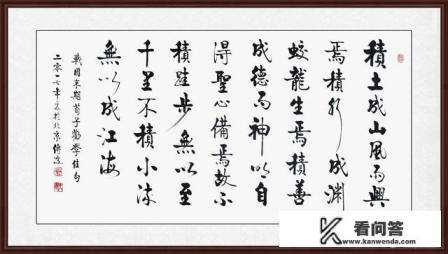 積土成山風雨興
焉積水成渊
蛟龍生焉積善
成德而神明自
得聖心備焉故不
積跬步無以至
千里不積小流
無以成江海
戰國末期荀子勸學佳句
二零一七年於北京
看问答
www.kanwenda.com